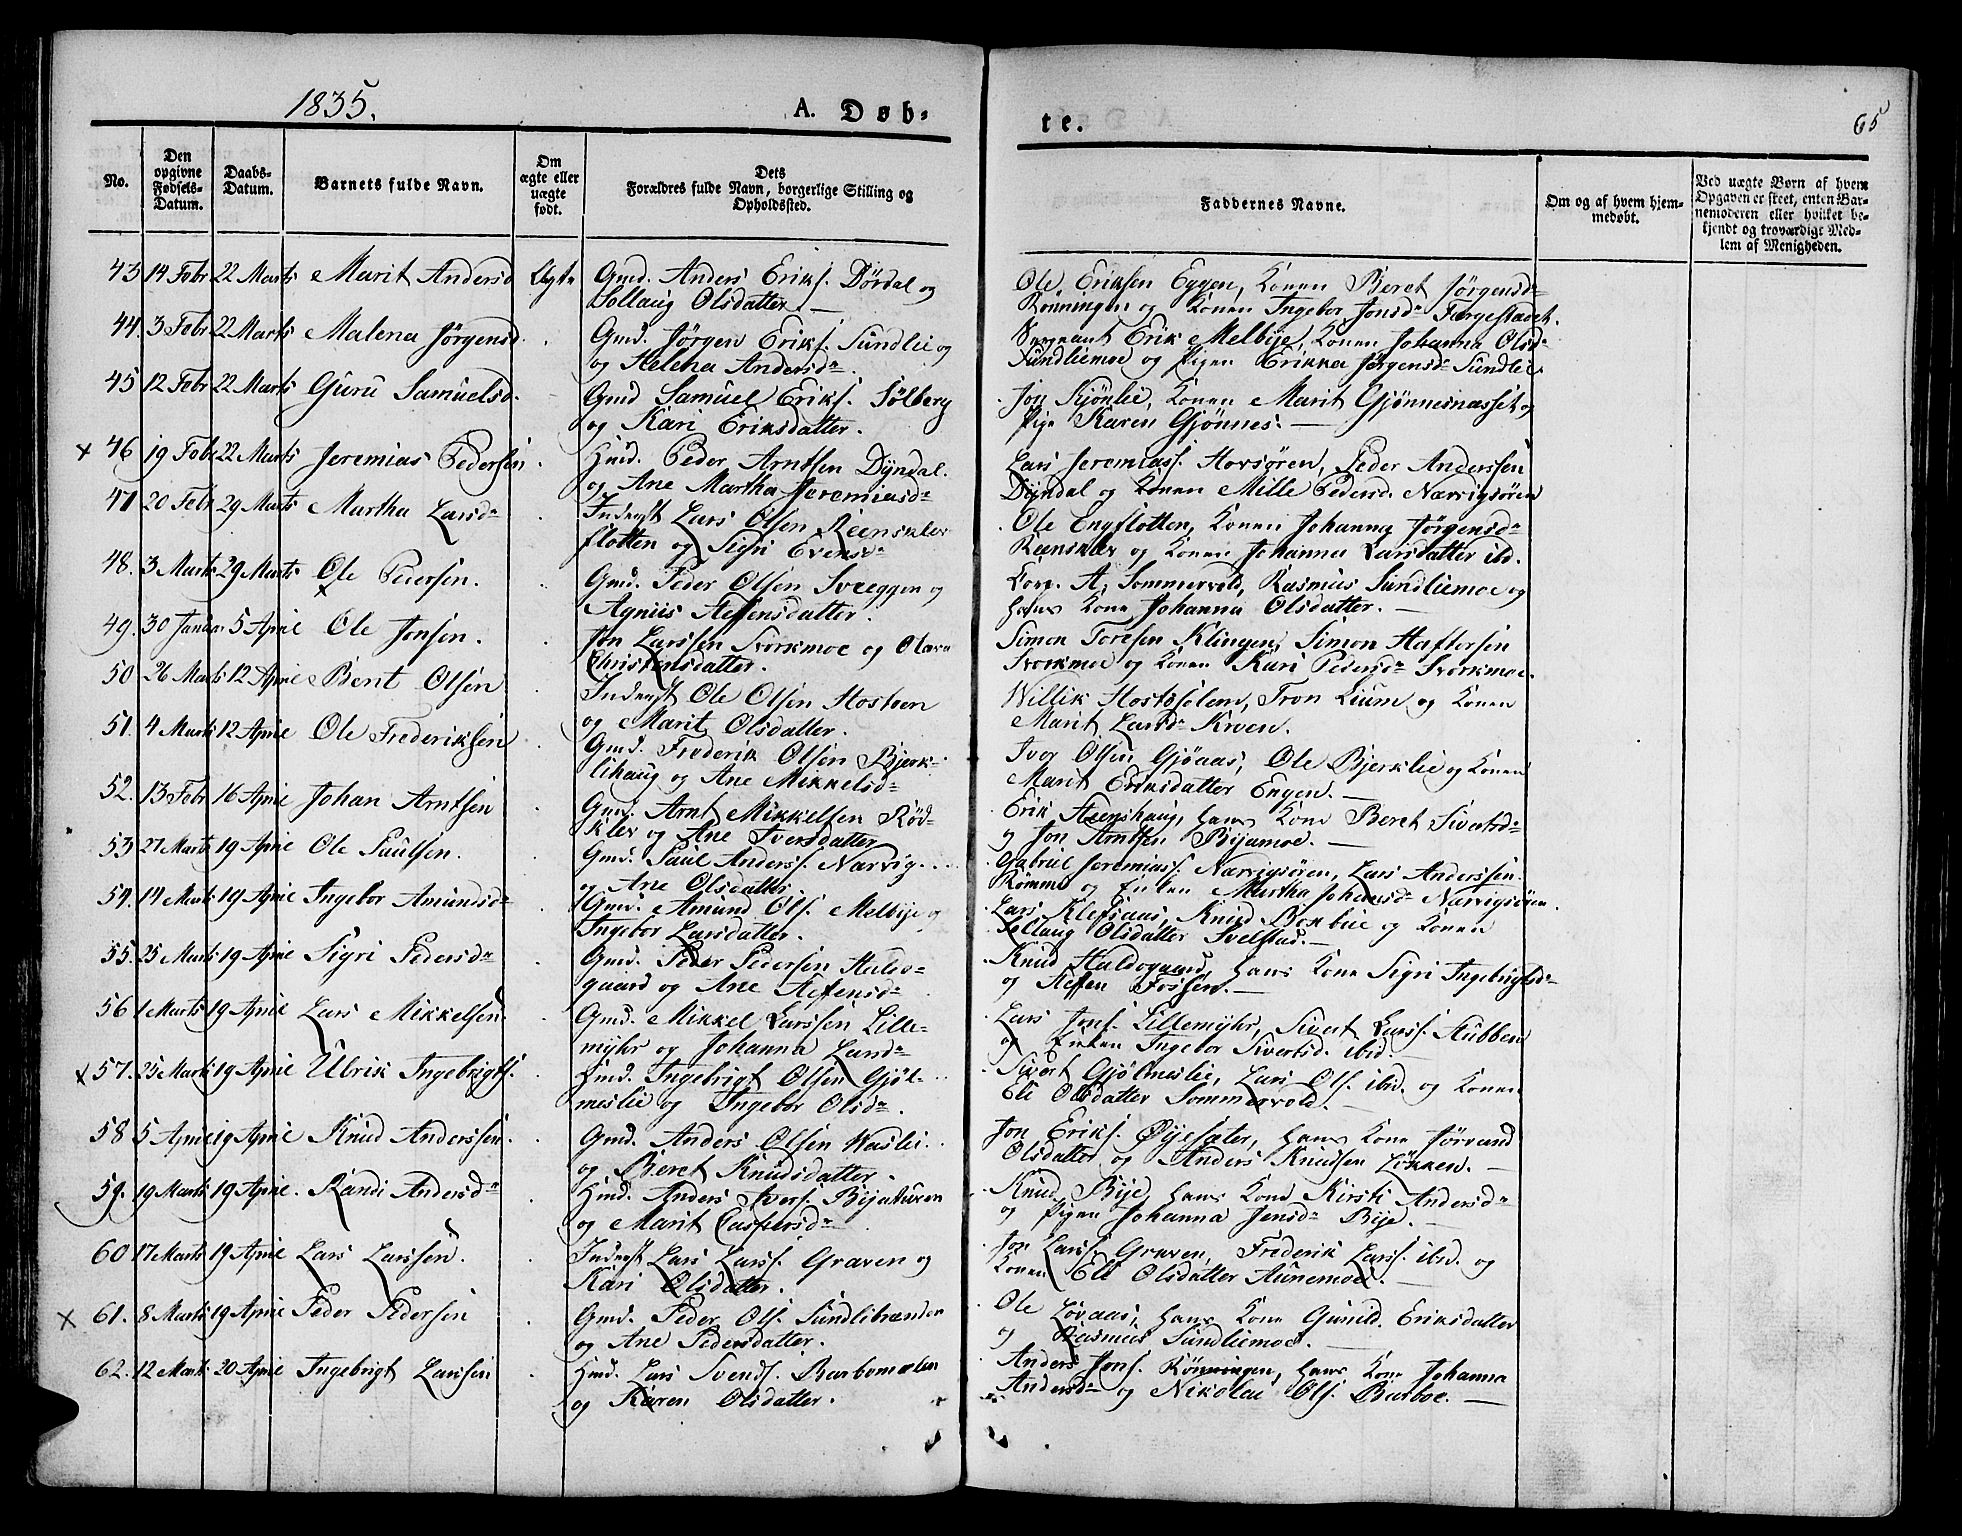 1835. A. Døb-
te. 65
No.
Den opgivne Fødsels-Datum.
Daabs-Datum.
Barnets fulde Navn.
Om ægte eller uægte født.
Dets Forældres fulde Navn, borgerlige Stilling og Opholdssted.
Faddernes Navne.
Om og af hvem hjemmedøbt.
Ved uægte Børn af hvem Opgaven er skeet, enten Barnemoderen eller hvilket bekjendt og troværdigt Medlem af Menigheden.
43 14 Febr 22 Marts Marit Andersd Ægte Gmd. Anders Eriks. Dørdal og Ole Eriksen Eggen, Konen Beret Jørgensdr
Sollaug Olsdatter. Rønningen og Konen Ingebor Jonsdr
44. 3 Febr 22 Marts Malena Jørgensd. Gmd. Jørgen Eriks. Sundlie og Sergeant Erik Melbye, Konen Johanna Olsdr
og Helena Andersdr. Sundliemoe og Pigen Erikka Jørgensdr Sundlie.
45 12 Febr 22 Marts Guru Samuelsd. Gmd Samuel Eriks. Sølberg Jon Kjønlie, Konen Marit Gjønnesnasset og
og Kari Eriksdatter. Pige Karen Gjønnes.
x 46 19 Febr 22 Marts Jeremias Pedersen Hmd. Peder Arntsen Dyndal. Lars Jeremiass. Hovsøren, Peder Anderssen
og Ane Martha Jeremiasdr Dyndal og Konen Mille Pedersd. Nærvigsøren
47 20 Febr 29 Marts Martha Larsdr Inderst Lars Olsen Reensklev Ole Engflotten, Konen Johanna Jørgensdr
flotten og Sigri Evensdr Reensklev og Konen Johanna Larsdatter ibd.
48. 3 Marts 29 Marts Ole Pedersen. Gmd. Peder Olsen Sveeggen og Korp. A. Sommervold, Rasmus Sundliemoe og
Agnis Steffensdatter. hans Kone Johanna Olsdatter.
49. 30 Januar 5 April Ole Jonsen. Jon Larssen Svorkmoe og Olava Simon Toresen Klingen, Simon Haftorsen
Christensdatter. Svorkmoe og Konen Kari Pedersdr Svorkmoe.
50 26 Marts 12 April Berit Olsen Inderst Ole Olsen Hosteen Willik Hostosølem, Tron Lium og Konen
og Marit Olsdatter. Marit Larsdr Kroen.
51. 4 Marts 12 April Ole Frederiksen Gmd. Frederik Olsen Bjerk- Iver Olsen Gjøaas, Ole Bjerklie og Konen
lihaug og Ane Mikkelsdr Marit Eriksdatter Engen.
52. 13 Febr 16 April Johan Arntsen Gmd. Arnt Mikkelsen Rød- Erik Steenshaug, hans Kone Beret Sivertsdr
klev og Ane Iversdatter og Jon Arntsen Byamoe.
53 27 Marts 19 April Ole Paulsen. Gmd. Paul Anders. Nærvig. Gabriel Jeremiass. Nærvigsøren, Lars Anderssen
og Ane Olsdatter. Rømme og Enken Martha Johansdr Nærvigsøren.
54. 14 Marts 19 April Ingebor Amundsdr Gmd. Amund Ols. Melbye og Lars Klefsaas, Knud Boxbue og Konen
Ingebor Larsdatter. Sollaug Olsdatter Svelstad.
55. 25 Marts 19 April Sigri Pedersdr Gmd. Peder Pedersen Haldo- Knud Haldogaard, hans Kone Sigri Ingebrigtsdr
gaard og Ane Steffensdr og Steffen Fossen.
56 1 Marts 19 April Lars Mikkelsen. Gmd. Mikkel Larssen Lille- Lars Jons. Lillemyhr, Sivert Larss. Stubben
myhr og Johanna Larsdr og Enken Ingebor Sivertsd. ibid.
x 57. 25 Marts 19 April Ulrik Ingebrigts. Hmd. Ingebrigt Olsen Gjøl- Sivert Gjølmeslie, Lars Ols. ibid. og Konen
meslie og Ingebor Olsdr. Eli Olsdatter Sommervold.
58 5 April 19 April Knud Anderssen. Gmd. Anders Olsen Waslie. Jon Eriks. Øyesæter, hans Kone Jørand
og Beret Knudsdatter. Olsdatter og Anders Knudsen Løkken.
59. 19 Marts 19 April. Randi Andersdr Hmd. Anders Ivers. Byahuren Knud Bye, hans Kone Kirsti Andersdr
og Marit Caspersdr og Pigen Johanna Jensdr Bye.
60 17 Marts 19 April Lars Larssen. Inderst Lars Larss. Graven og Jon Larss. Graven, Frederik Larss. ibid. og
Kari Olsdatter. Konen Eli Olsdatter Aunemoe.
x 61. 8 Marts 19 April Peder Pedersen Gmd. Peder Ols. Sundlibrænden Ole Løvaas, hans Kone Gunild Eriksdatter
og Ane Pedersdatter. og Rasmus Sundliemoe.
62. 12 Marts 20 April Ingebrigt Larssen Hmd. Lars Svends. Barbomælen Anders Jons. Rønningen, hans Kone Johanna
og Karen Olsdatter. Andersdr og Nikolai Ols. Barboe.